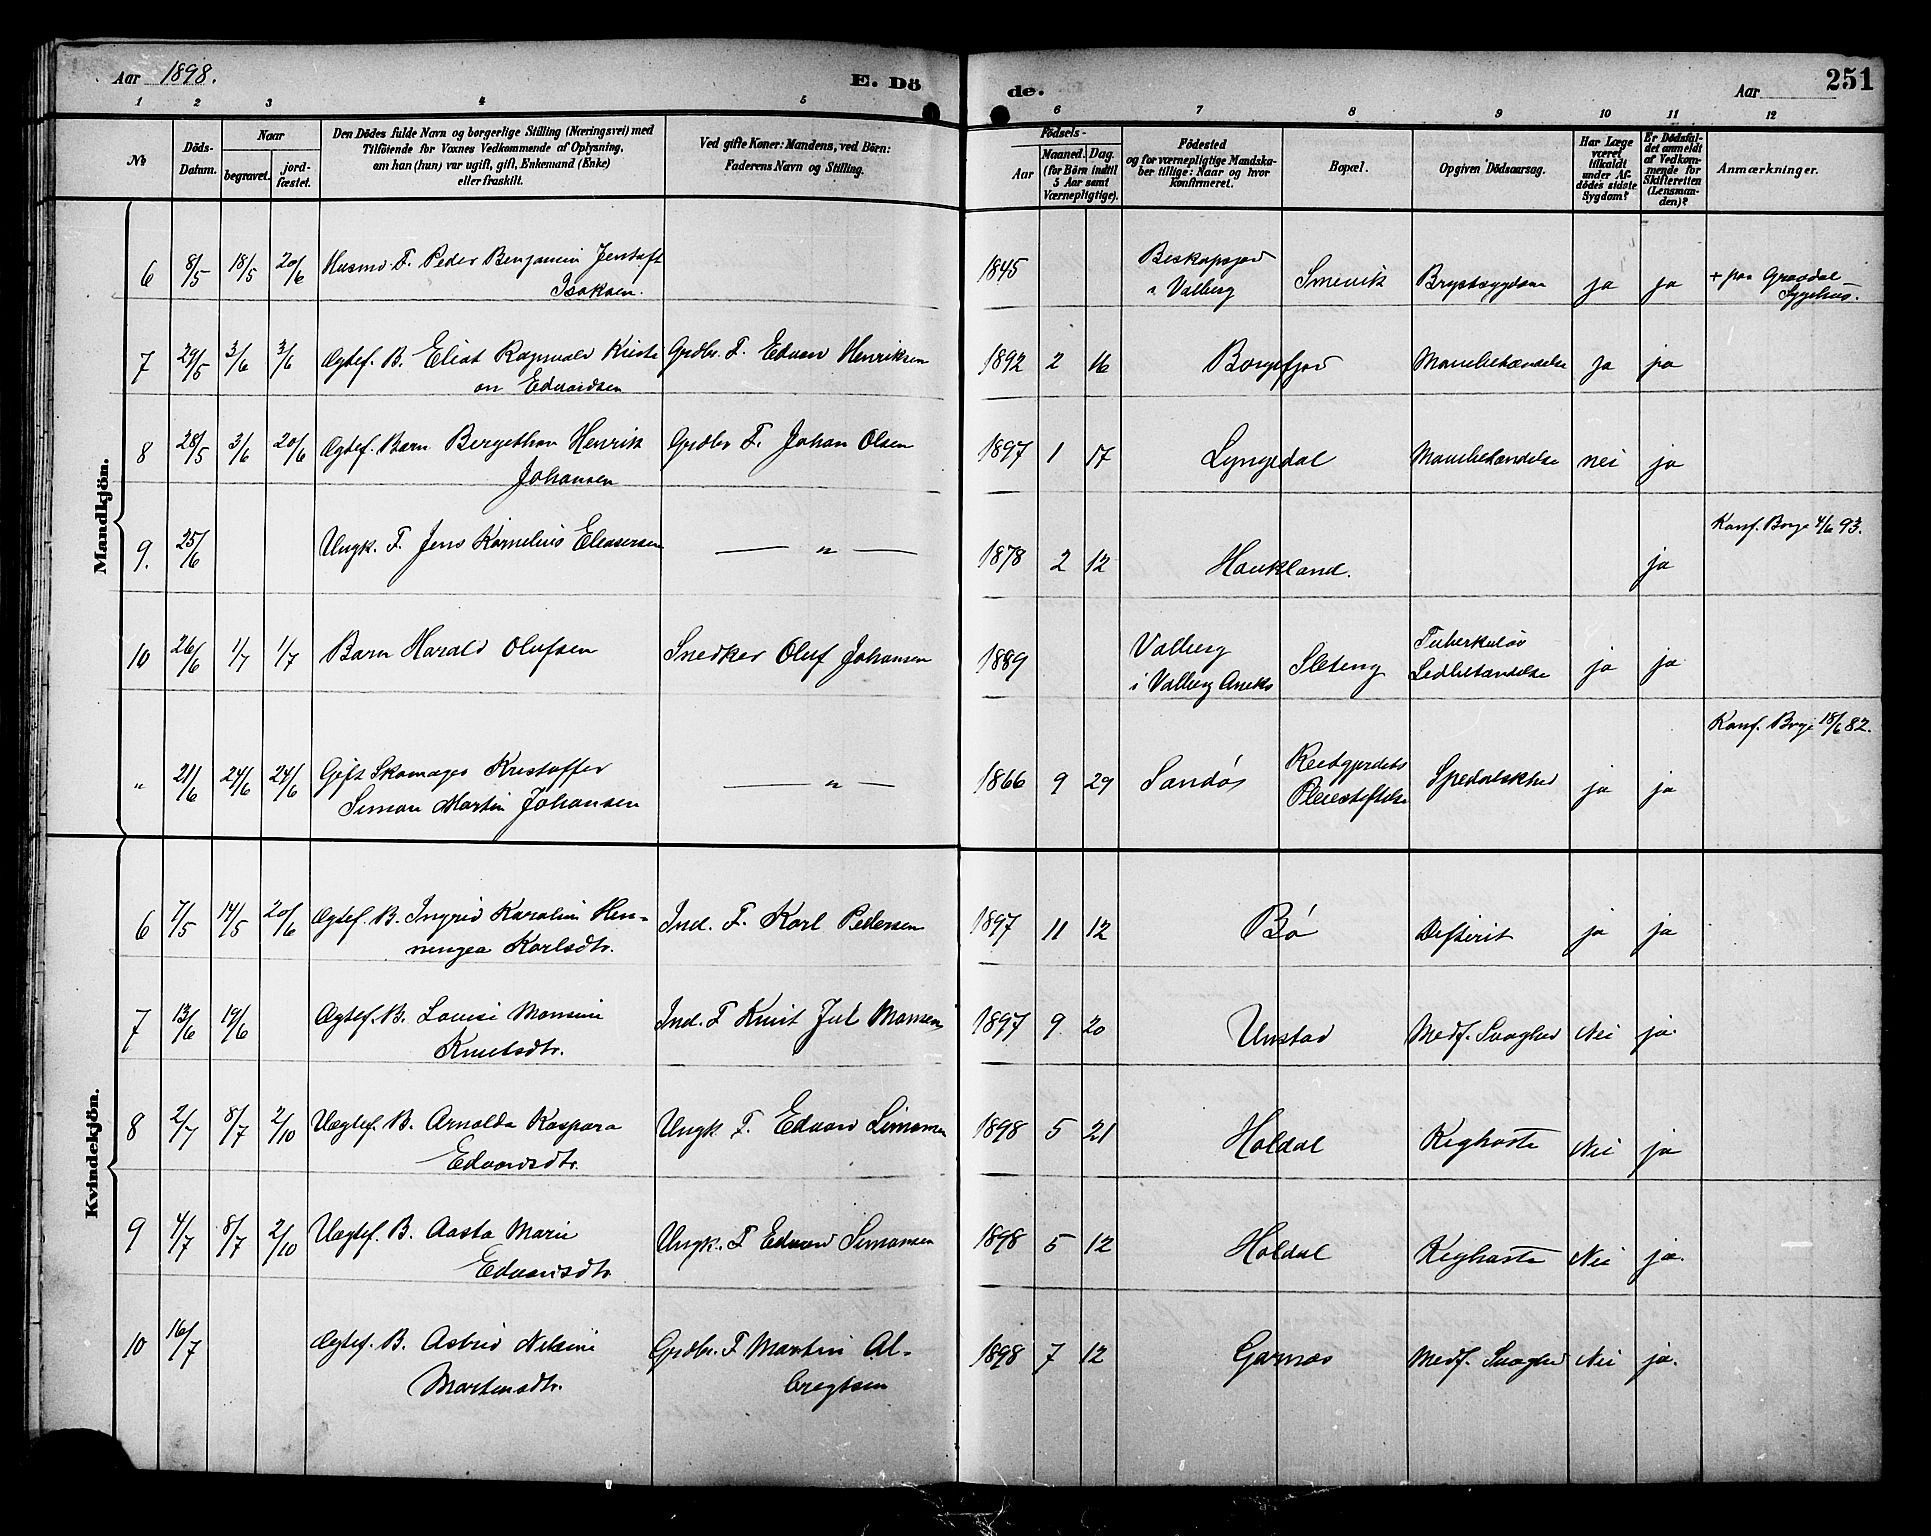 Aar 1898.
E. Dö
de.
Aar
251
1 2 3 4 5 6 7 8 9 10 11 12
No
Döds-Datum.
Naar
begravet.
jord-fæstet.
Den Dödes fulde Navn og borgerlige Stilling (Næringsvei) med
Tilföiende for Voxnes Vedkommende af Oplysning,
om han (hun) var ugift, gift, Enkemand (Enke)
eller fraskilt.
Ved gifte Koner: Mandens, ved Börn:
Faderens Navn og Stilling.
Födsels-
Aar
Maaned. Dag.
(for Börn indtil
5 Aar samt
Værnepligtige).
Födested
og for værnepligtige Mandska-
ber tillige: Naar og hvor
konfirmeret.
Bopæl.
Opgiven Dödsaarsag.
Har Læge
været
tilkaldt
under Af-
dödes sidste
Sygdom?
Er Dödsfal-
det anmeldt
af Vedkom-
mende for
Skifteretten
(Lensman-
den)?
Anmærkninger.
Mandkjön.
6 8/5 18/5 20/6 Husmd. F. Peder Benjamin Jentoft 1845 i Valberg Smevik Brystsygdom ja ja + paa Gravdal
Isaksen. Sygehus.
7 29/5 3/6 3/6 Ægtef. B. Eliot Ragnvald Kristi Grdbr. F. Edvard Henriksen 1892 2 16 Borgefjord Mavebetændelse ja ja
an Edvardsen
8 28/5 3/6 20/6 Ægtef. Barn Bergethon Henrik Grdbr F. Johan Olsen 1897 1 17 Lyngedal Mavebetændelse nei ja
Johansen
Konf. Borge 4/6 93.
9. 25/6 Ungk. F. Jens Kornelius Eleasersen — „ — 1878 2 12 Haukland. ja
10 26/6 1/7 1/7 Barn Harald Olufsen Snedker Oluf Johansen 1889 Valberg Sleteng Tuberkuløs ja ja
i Valberg Aneks Ledbetændelse
Konf. Borge 18/6 82.
„ 21/6 24/6 24/6 Gift Skomager Kristoffer — „ — 1866 9 29 Sandøs Reitgjerdets Spedalskhed ja ja
Simon Martin Johansen Pleiestiftelse
Kvindekjön.
6 7/5 14/5 20/6 Ægtef. B. Ingrid Karoline Hen- Ind. F. Karl Pedersen 1897 11 12 Bø Difterit ja ja
ningea Karlsdtr.
7 13/6 19/6 Ægtef. B. Louise Monsine Ind. F Knut Jul Monsen 1897 9 20 Unstad Medf. Svaghed Nei ja.
Knutsdtr.
8 2/7 8/7 2/10 Uægtef. B. Arnolda Kaspara Ungk. F. Edvard Simonsen 1898 5 21 Holdal Kighoste Nei ja
Edvardsdtr.
9 4/7 8/7 2/10 Uægtef. B. Aasta Marie Ungk. F Edvard Simonsen 1898 5 12 Holdal Kighoste Nei ja.
Edvardsdtr
10 16/7 Ægtef. B. Astrid Nelsine Grdbr. F Martin Al- 1898 7 12 Garnæs Medf. Svaghed Nei ja.
Martinsdtr. bregtsen